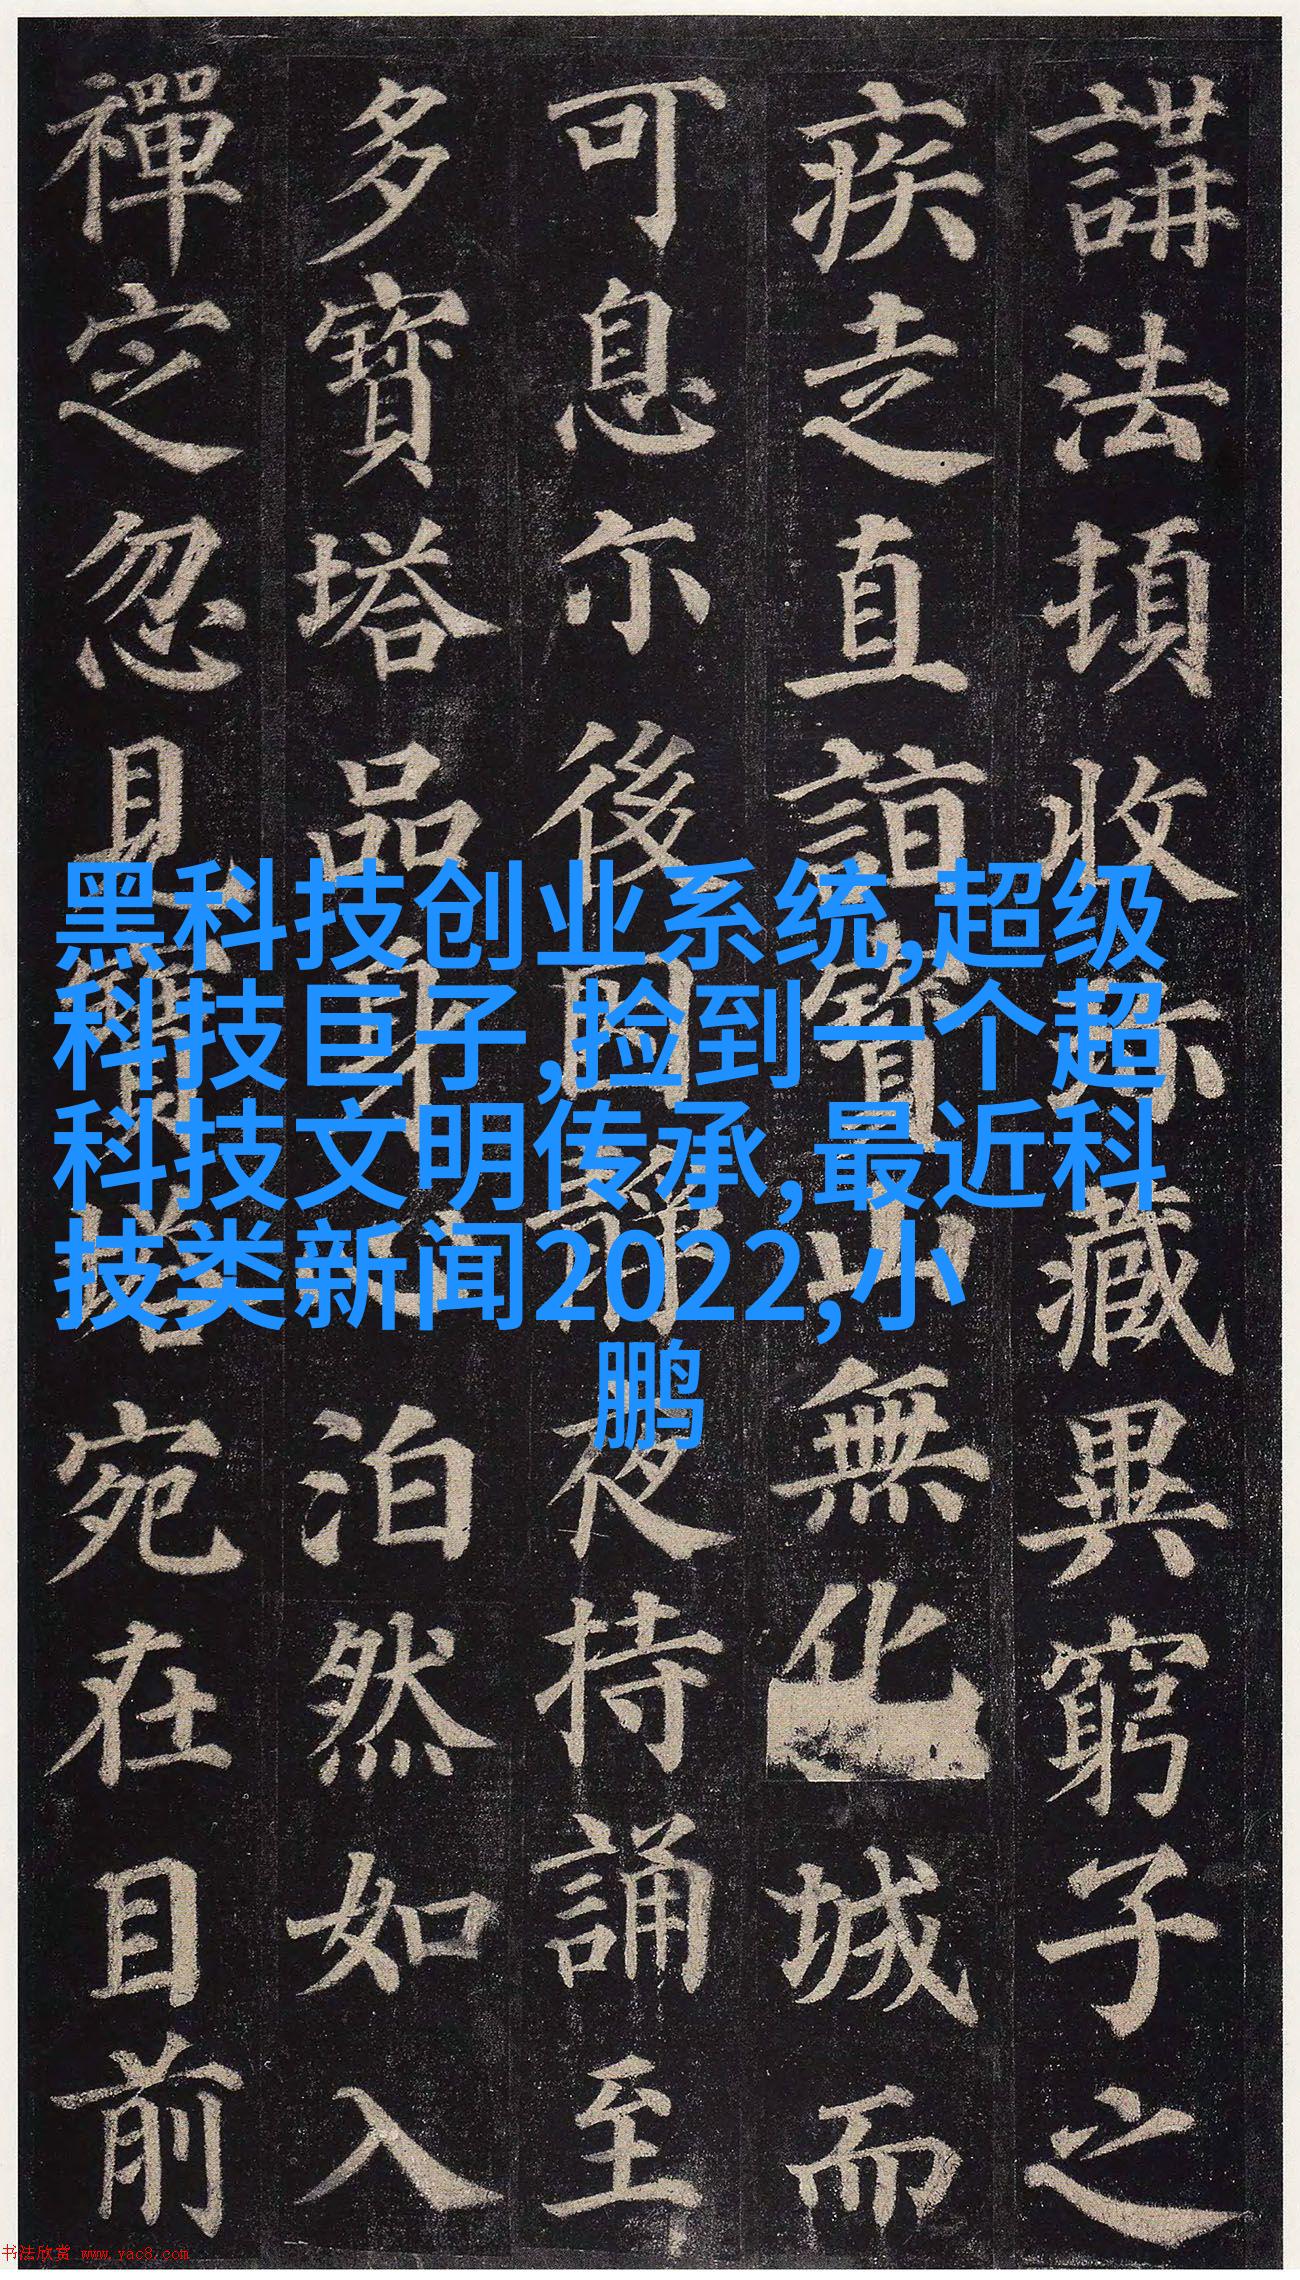 講法頂收跡藏異窮子之
疾走直詣寶山無化城而
可息尒後因靜夜持誦至
多寶塔品身心泊然如入
禪定忽見寶塔宛在目前
黑科技创业系统,超级
科技巨子,捡到一个超
科技文明传承,最近科
技类新闻2022,小
鹏
书法欣赏 www.yac8.com